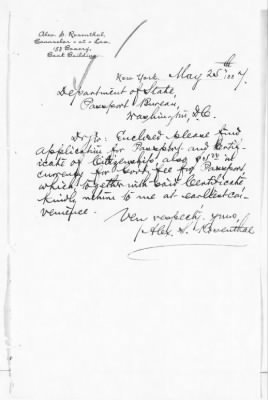 Alex. S. Rosenthal,
Counselor - at - Law
153 Bowery,
Bank Building
New York. May 25th 1887.
Department of State,
Passport Bureau,
Washington, D.C.
Dr Sir: Enclosed please find
Application for Passport and Certifi-
cate of Citizenship, also $1.00 in
currency for Govt. fee for Passport,
which together with said Certificate,
kindly return to me at earliest con-
venience.
Very respectf. yours,
Alex. S. Rosenthal